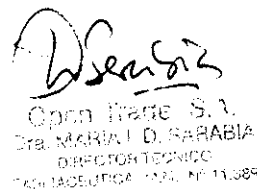 DSarabia
Open Trade S.A.
Dra. MARIA I. D. SARABIA
DIRECTOR TECNICO
FARMACEUTICA MAT. Nº 11.389